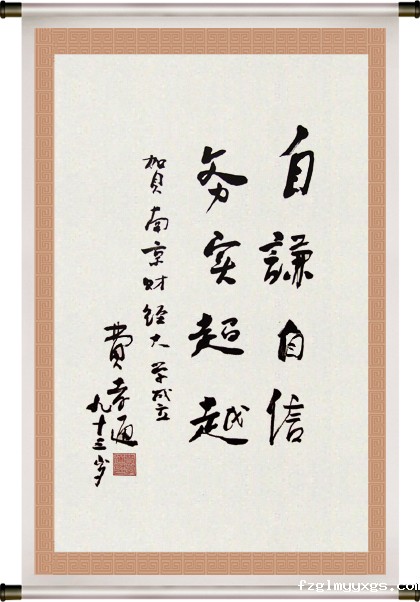 自謙自信
务实超越
贺南京财经大学成立
费孝通
九十三岁
fzglmyyxgs.com